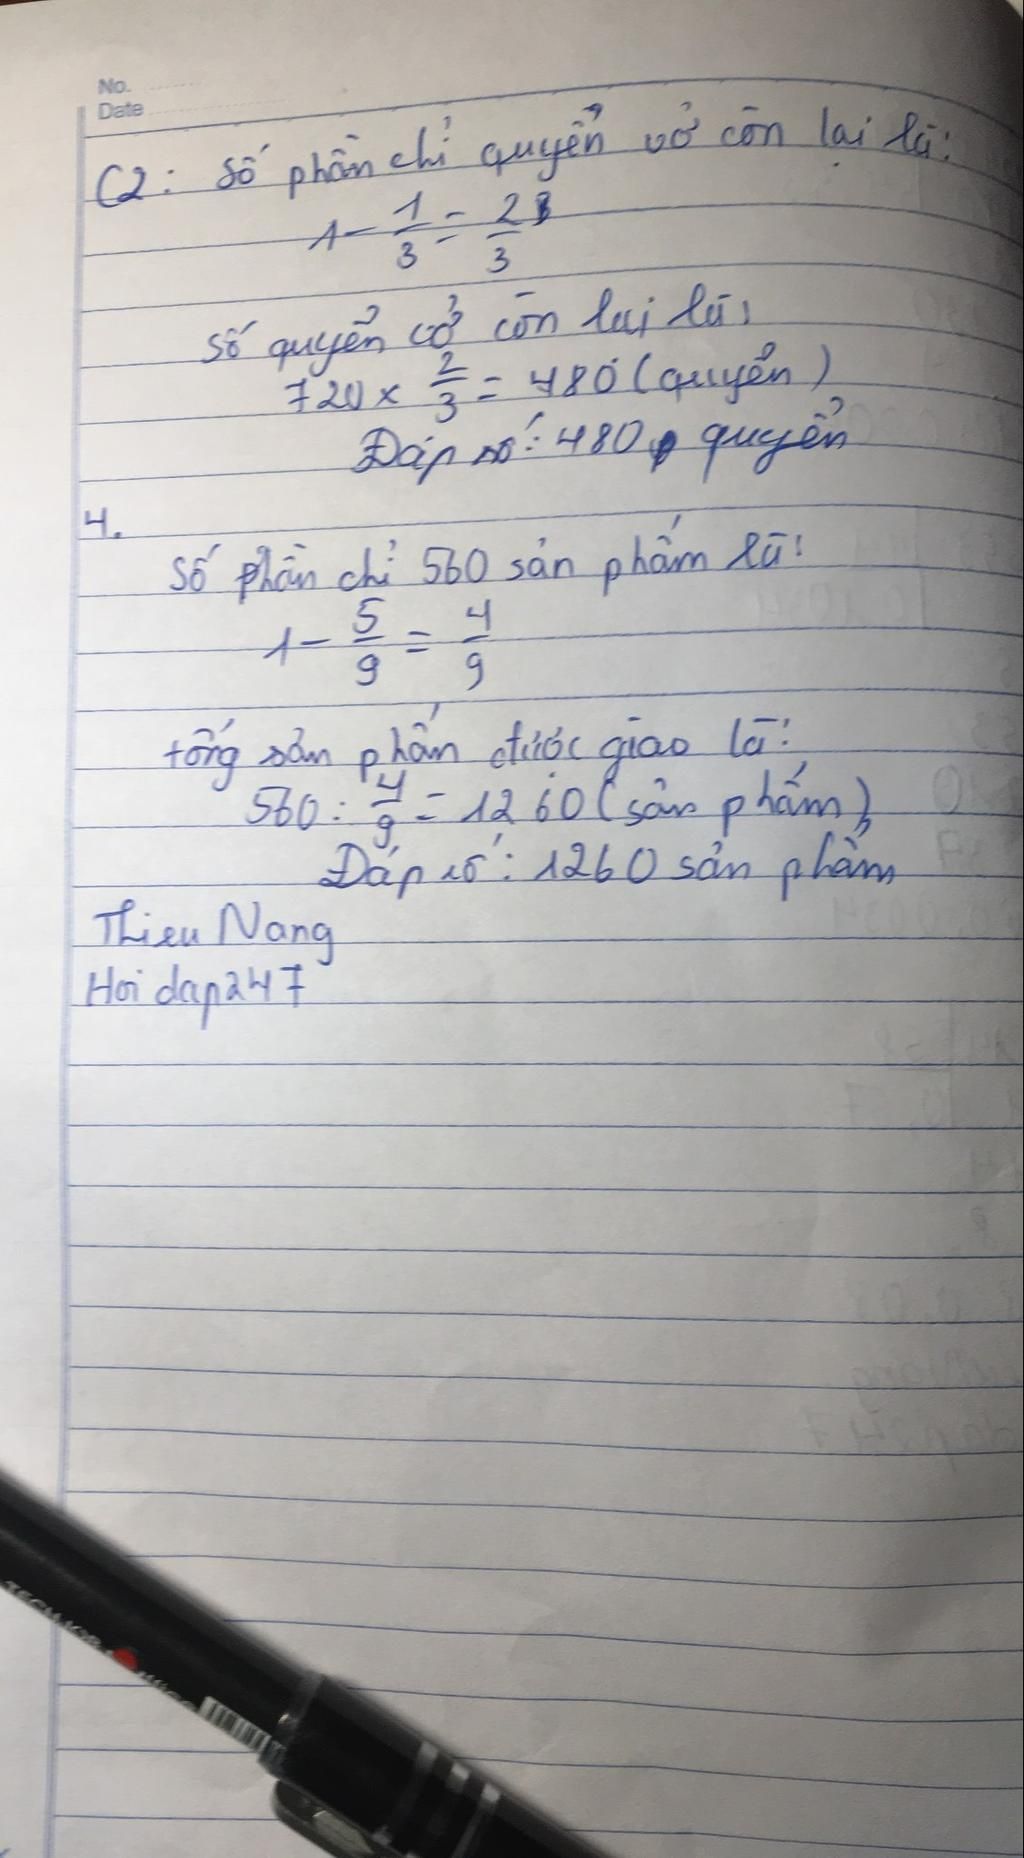 No.
Date
C2: Số phần chỉ quyển vở còn lại là:
1 - 1/3 = 2/3
Số quyển vở còn lại là:
720 x 2/3 = 480 (quyển)
Đáp số: 480 quyển
4.
Số phần chỉ 560 sản phẩm là:
1 - 5/9 = 4/9
tổng sản phẩm được giao là:
560 : 4/9 = 1260 (sản phẩm)
Đáp số: 1260 sản phẩm
Thieu Nang
Hoi dap247